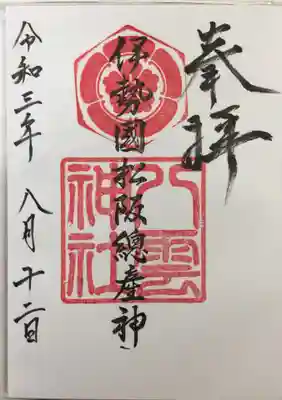 奉拝
伊勢國松阪總産神
八雲神社
令和三年八月十二日